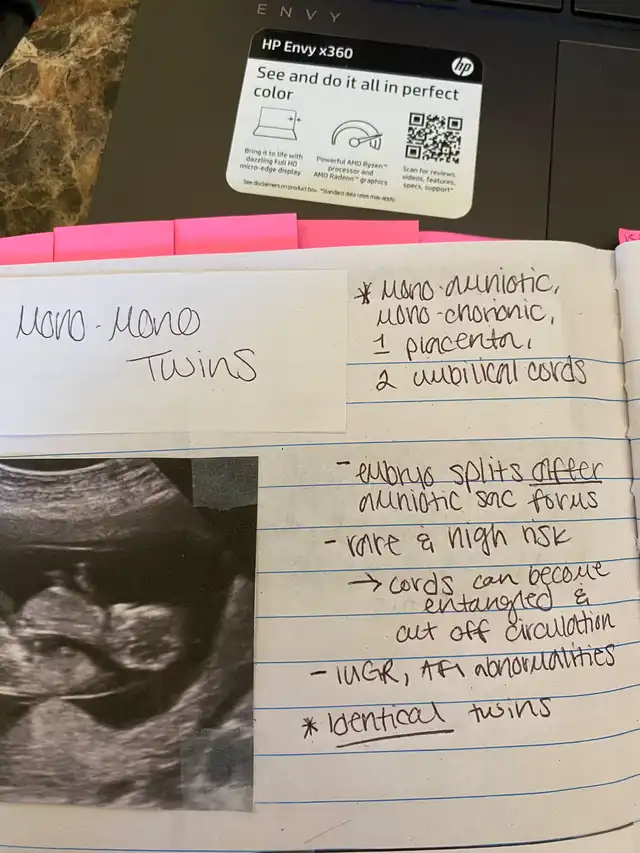 ENVY
HP Envy x360
hp
See and do it all in perfect
color
Bring it to life with
dazzling Full HD
micro-edge display
Powerful AMD Ryzen™
processor and
AMD Radeon™ graphics
Scan for reviews,
videos, features,
specs, support*
See disclaimers on product box. *Standard data rates may apply.
Mono-Mono
Twins
* Mono-amniotic,
mono-chorionic,
1 placenta,
2 umbilical cords
- embryo splits after
amniotic sac forms
- rare & high risk
→ cords can become
entangled &
cut off circulation
- IUGR, AFI abnormalities
* Identical twins